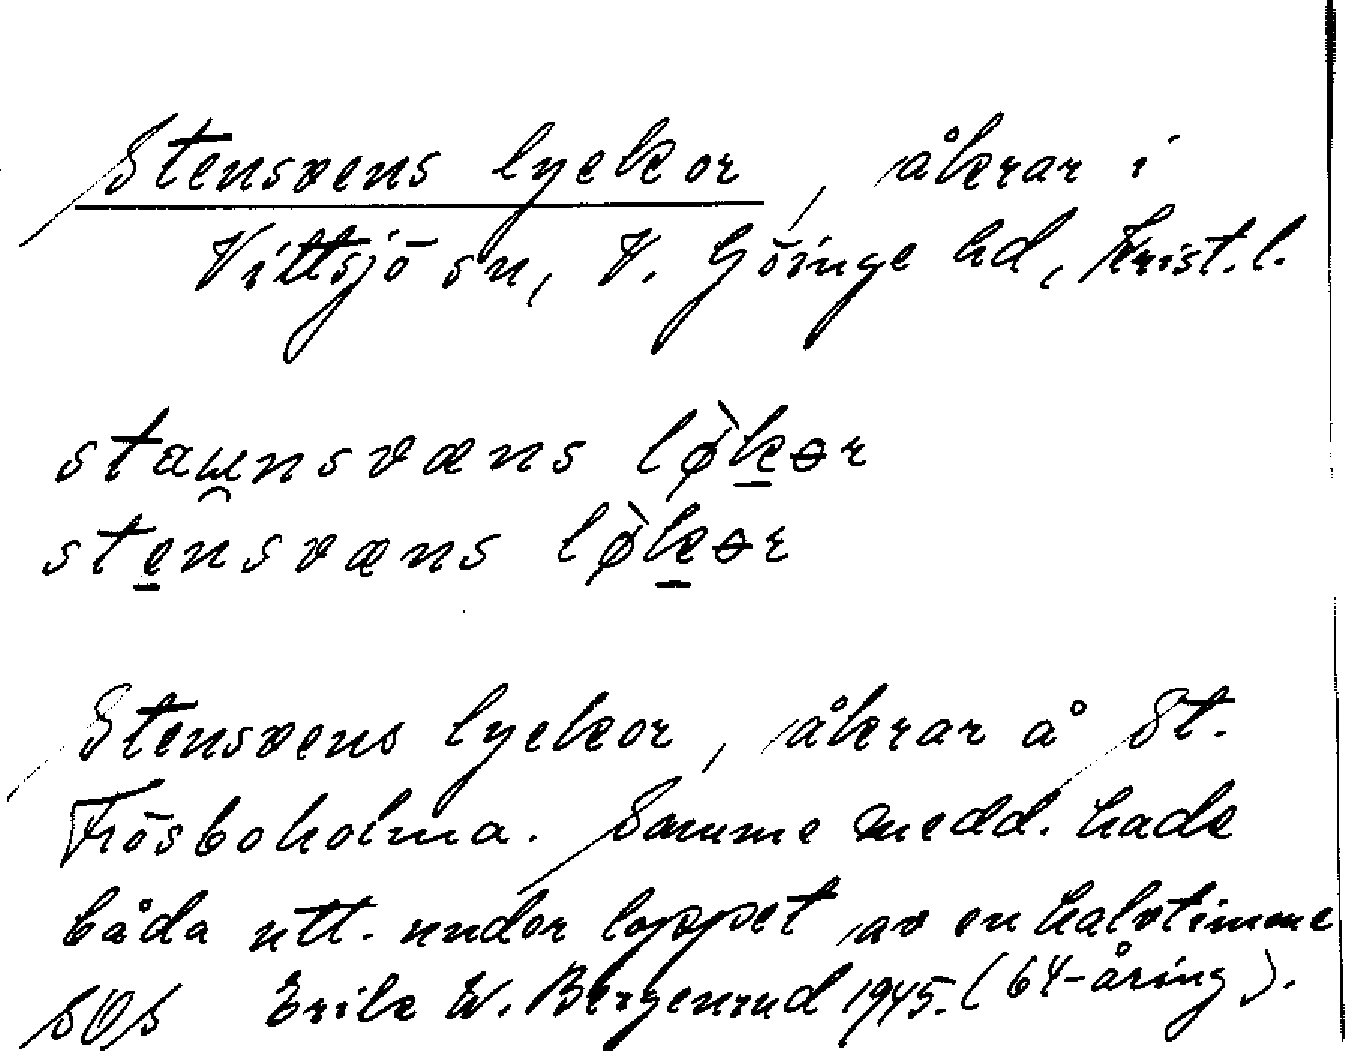 Stensvens lyckor, åkrar i
Vittsjö sn, V. Göinge hd, Krist. l.
staunsvæns lø̀kər
stensvæns lø̀kər
Stensvens lyckor, åkrar å St.
Frösboholma. Samme medd. hade
båda utt. under loppet av en halvtimme
SOS Erik W. Bergenrud 1945. (64-åring).